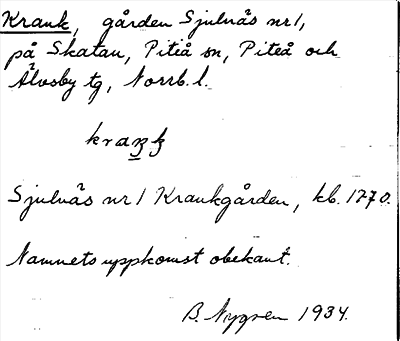 Krank, gården Sjulnäs nr 1,
på Skatan, Piteå sn, Piteå och
Älvsby tg, Norrb. l.
Sjulnäs nr 1 Krankgården, kb. 1770.
Namnets uppkomst obekant.
B. Nygren 1934.